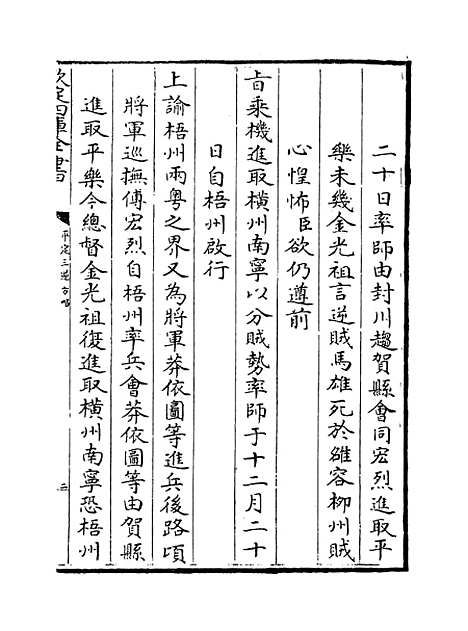 二十日率師由封川趨賀縣會同宏烈進取平
樂未幾金光祖言逆賊馬雄死於雒容柳州賊
心惶怖臣欲仍遵前
旨乘機進取橫州南寧以分賊勢率師于十二月二十
日自梧州啟行
上諭梧州兩粵之界又為將軍莽依圖等進兵後路頃
將軍巡撫傅宏烈自梧州率兵會莽依圖等由賀縣
進取平樂今總督金光祖復進取橫州南寧恐梧州
欽定四庫全書
平定三逆方略